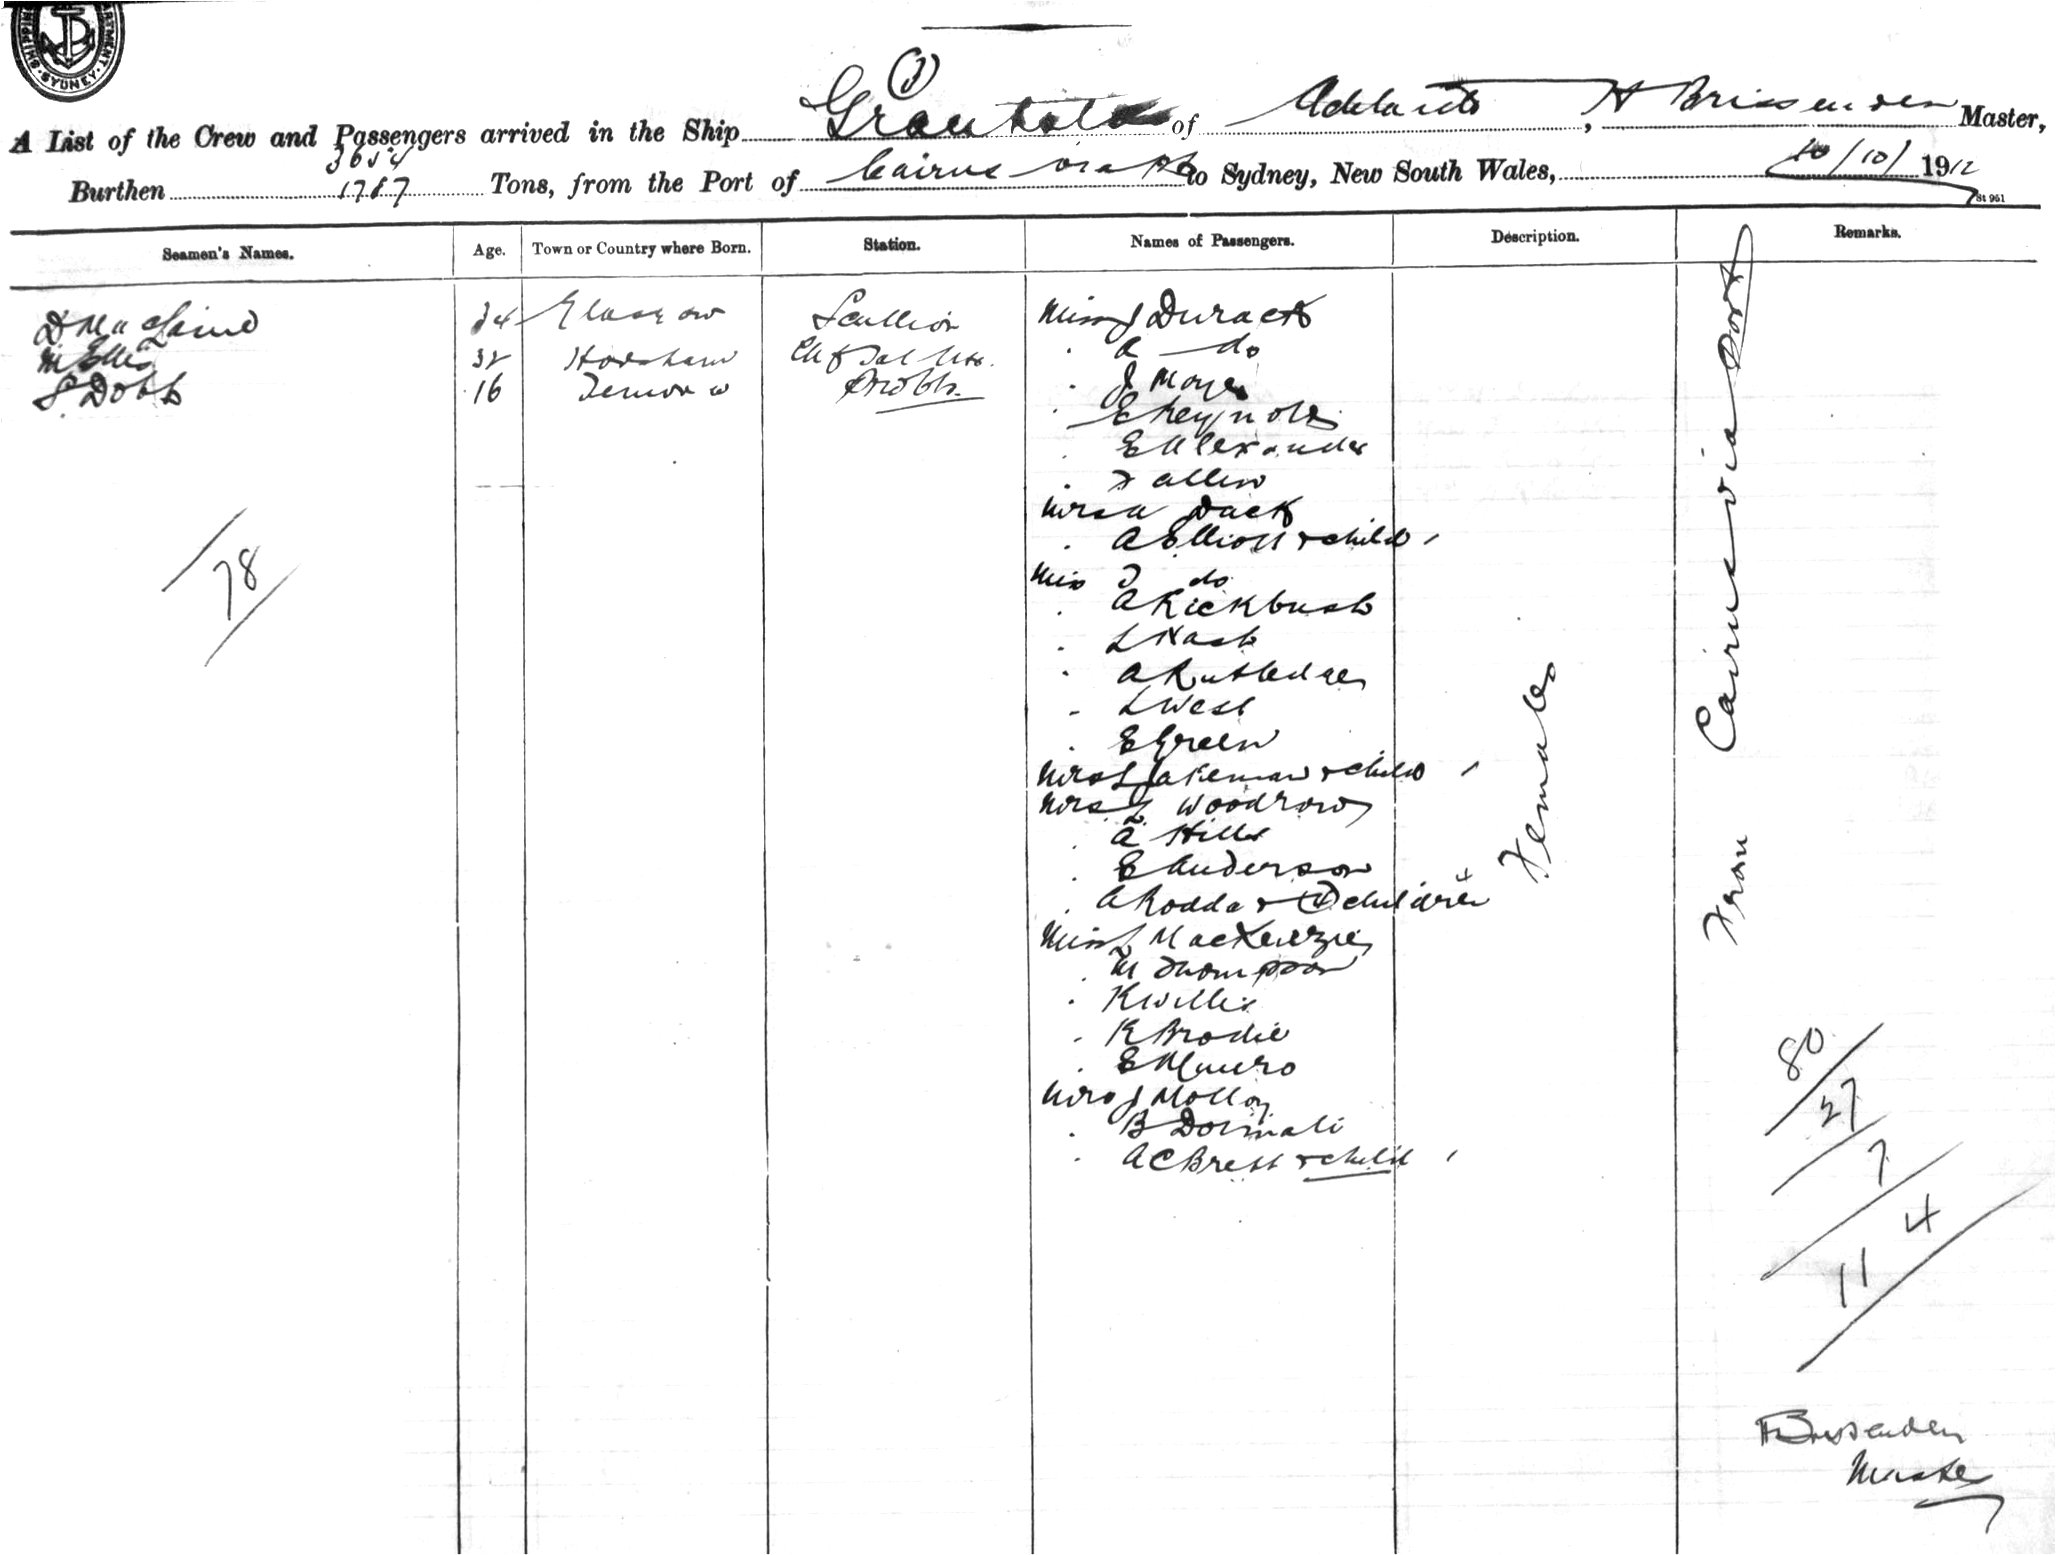 SHIPPING DEPARTMENT. SYDNEY.
(1)
A List of the Crew and Passengers arrived in the Ship Grantala of Adelaide, H Brissenden Master,
3654
Burthen 1787 Tons, from the Port of Cairns via to Sydney, New South Wales, 10/10/1912
St 951
Seamen's Names. Age. Town or Country where Born. Station. Names of Passengers. Description. Remarks.
D Maclaine 34 Glasgow Scullion Miss J Durack
M Ellis 32 Horsham . A do
S Dobb 16 Temora . J Moyes
. E Reynolds
. E Alexander
. F Allen
Mrs A Dack
. A Elliott + child
Miss J do
. A Rickbush
. L Nash
. A Rutledge
. L West
. E Green
Mrs L Jakeman + child
Mrs J Woodrow
. A Hills
. E Anderson
. A Rodda + 4 children
Miss J MacKenzie
. M Thompson
. K Willis
. K Brodie
. E Munro
Mrs J Molloy
. B
. A C Brett + child
78
Females
From Cairns via Ports
80
27
7
4
11
H Brissenden
Master